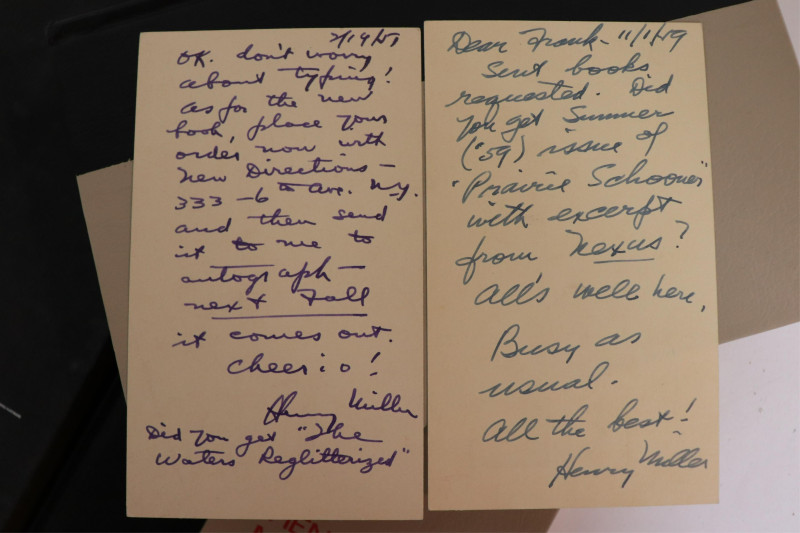 7/19/57
OK. don't worry
about typing!
as for the new
book, place your
order now with
New Directions —
333 - 6th Ave. N.Y.
and then send
it to me to
autograph —
next Fall
it comes out.
Cheerio!
Henry Miller
Did you get "The
Waters Reglitterized"
Dear Frank - 11/1/59
Sent books
requested. Did
you get Summer
('59) issue of
"Prairie Schooner"
with excerpt
from Nexus?
All's well here,
Busy as
usual.
All the best!
Henry Miller